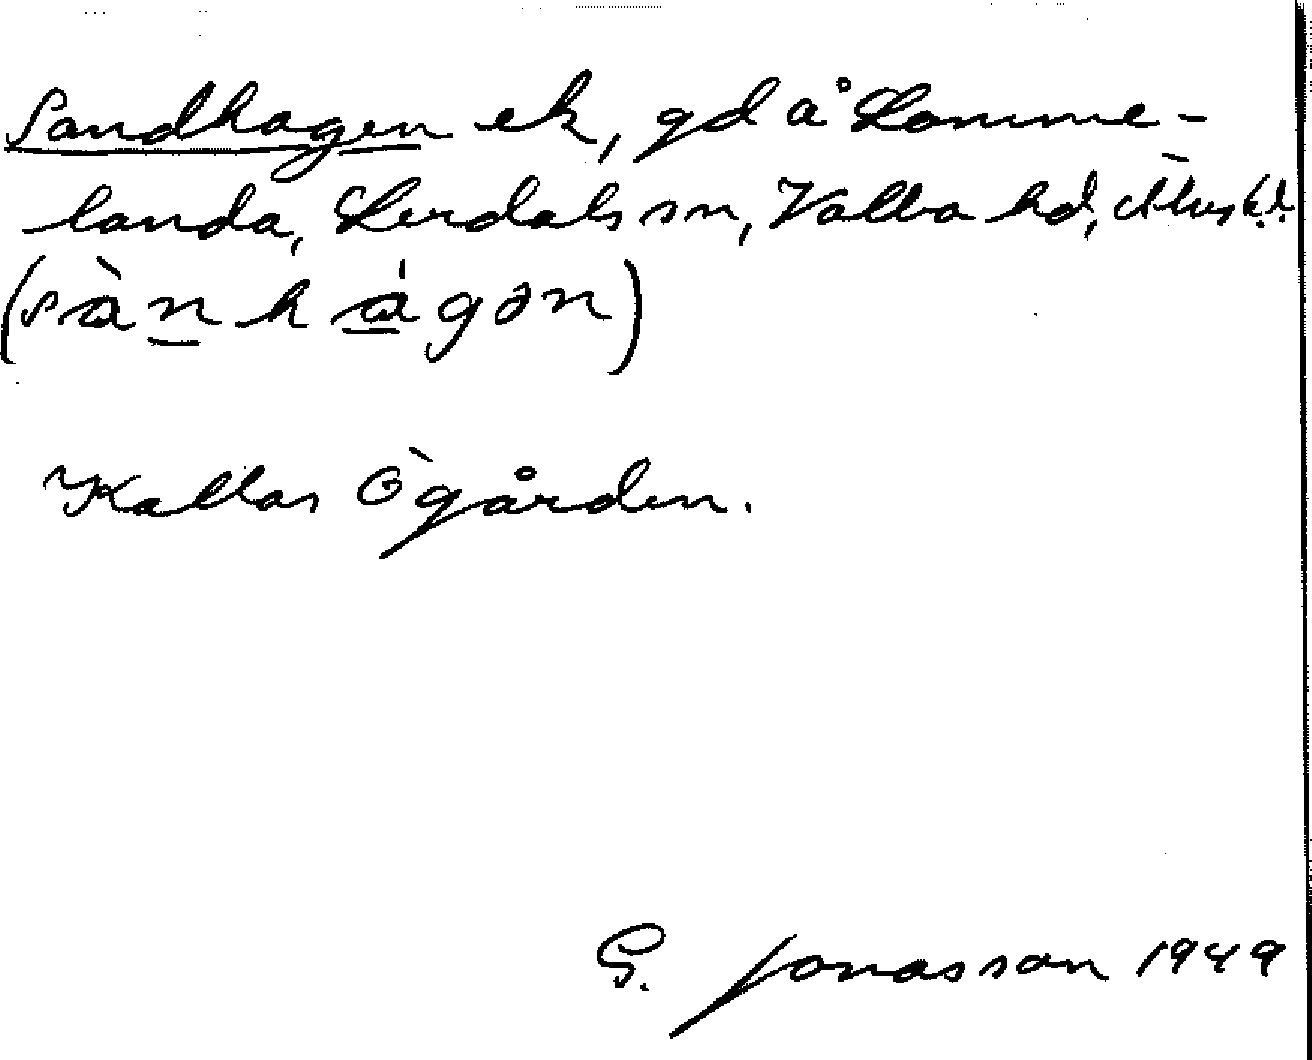 Sandhagen ek, gd å Lomme-
landa, Lerdals sn, Valbo hd,
(sànhágən)
Kallas Ögården.
G. Jonasson 1949